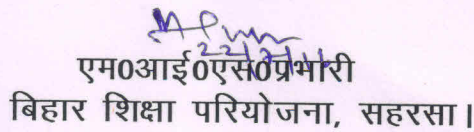 एम0आई0एस0प्रभारी
बिहार शिक्षा परियोजना, सहरसा।